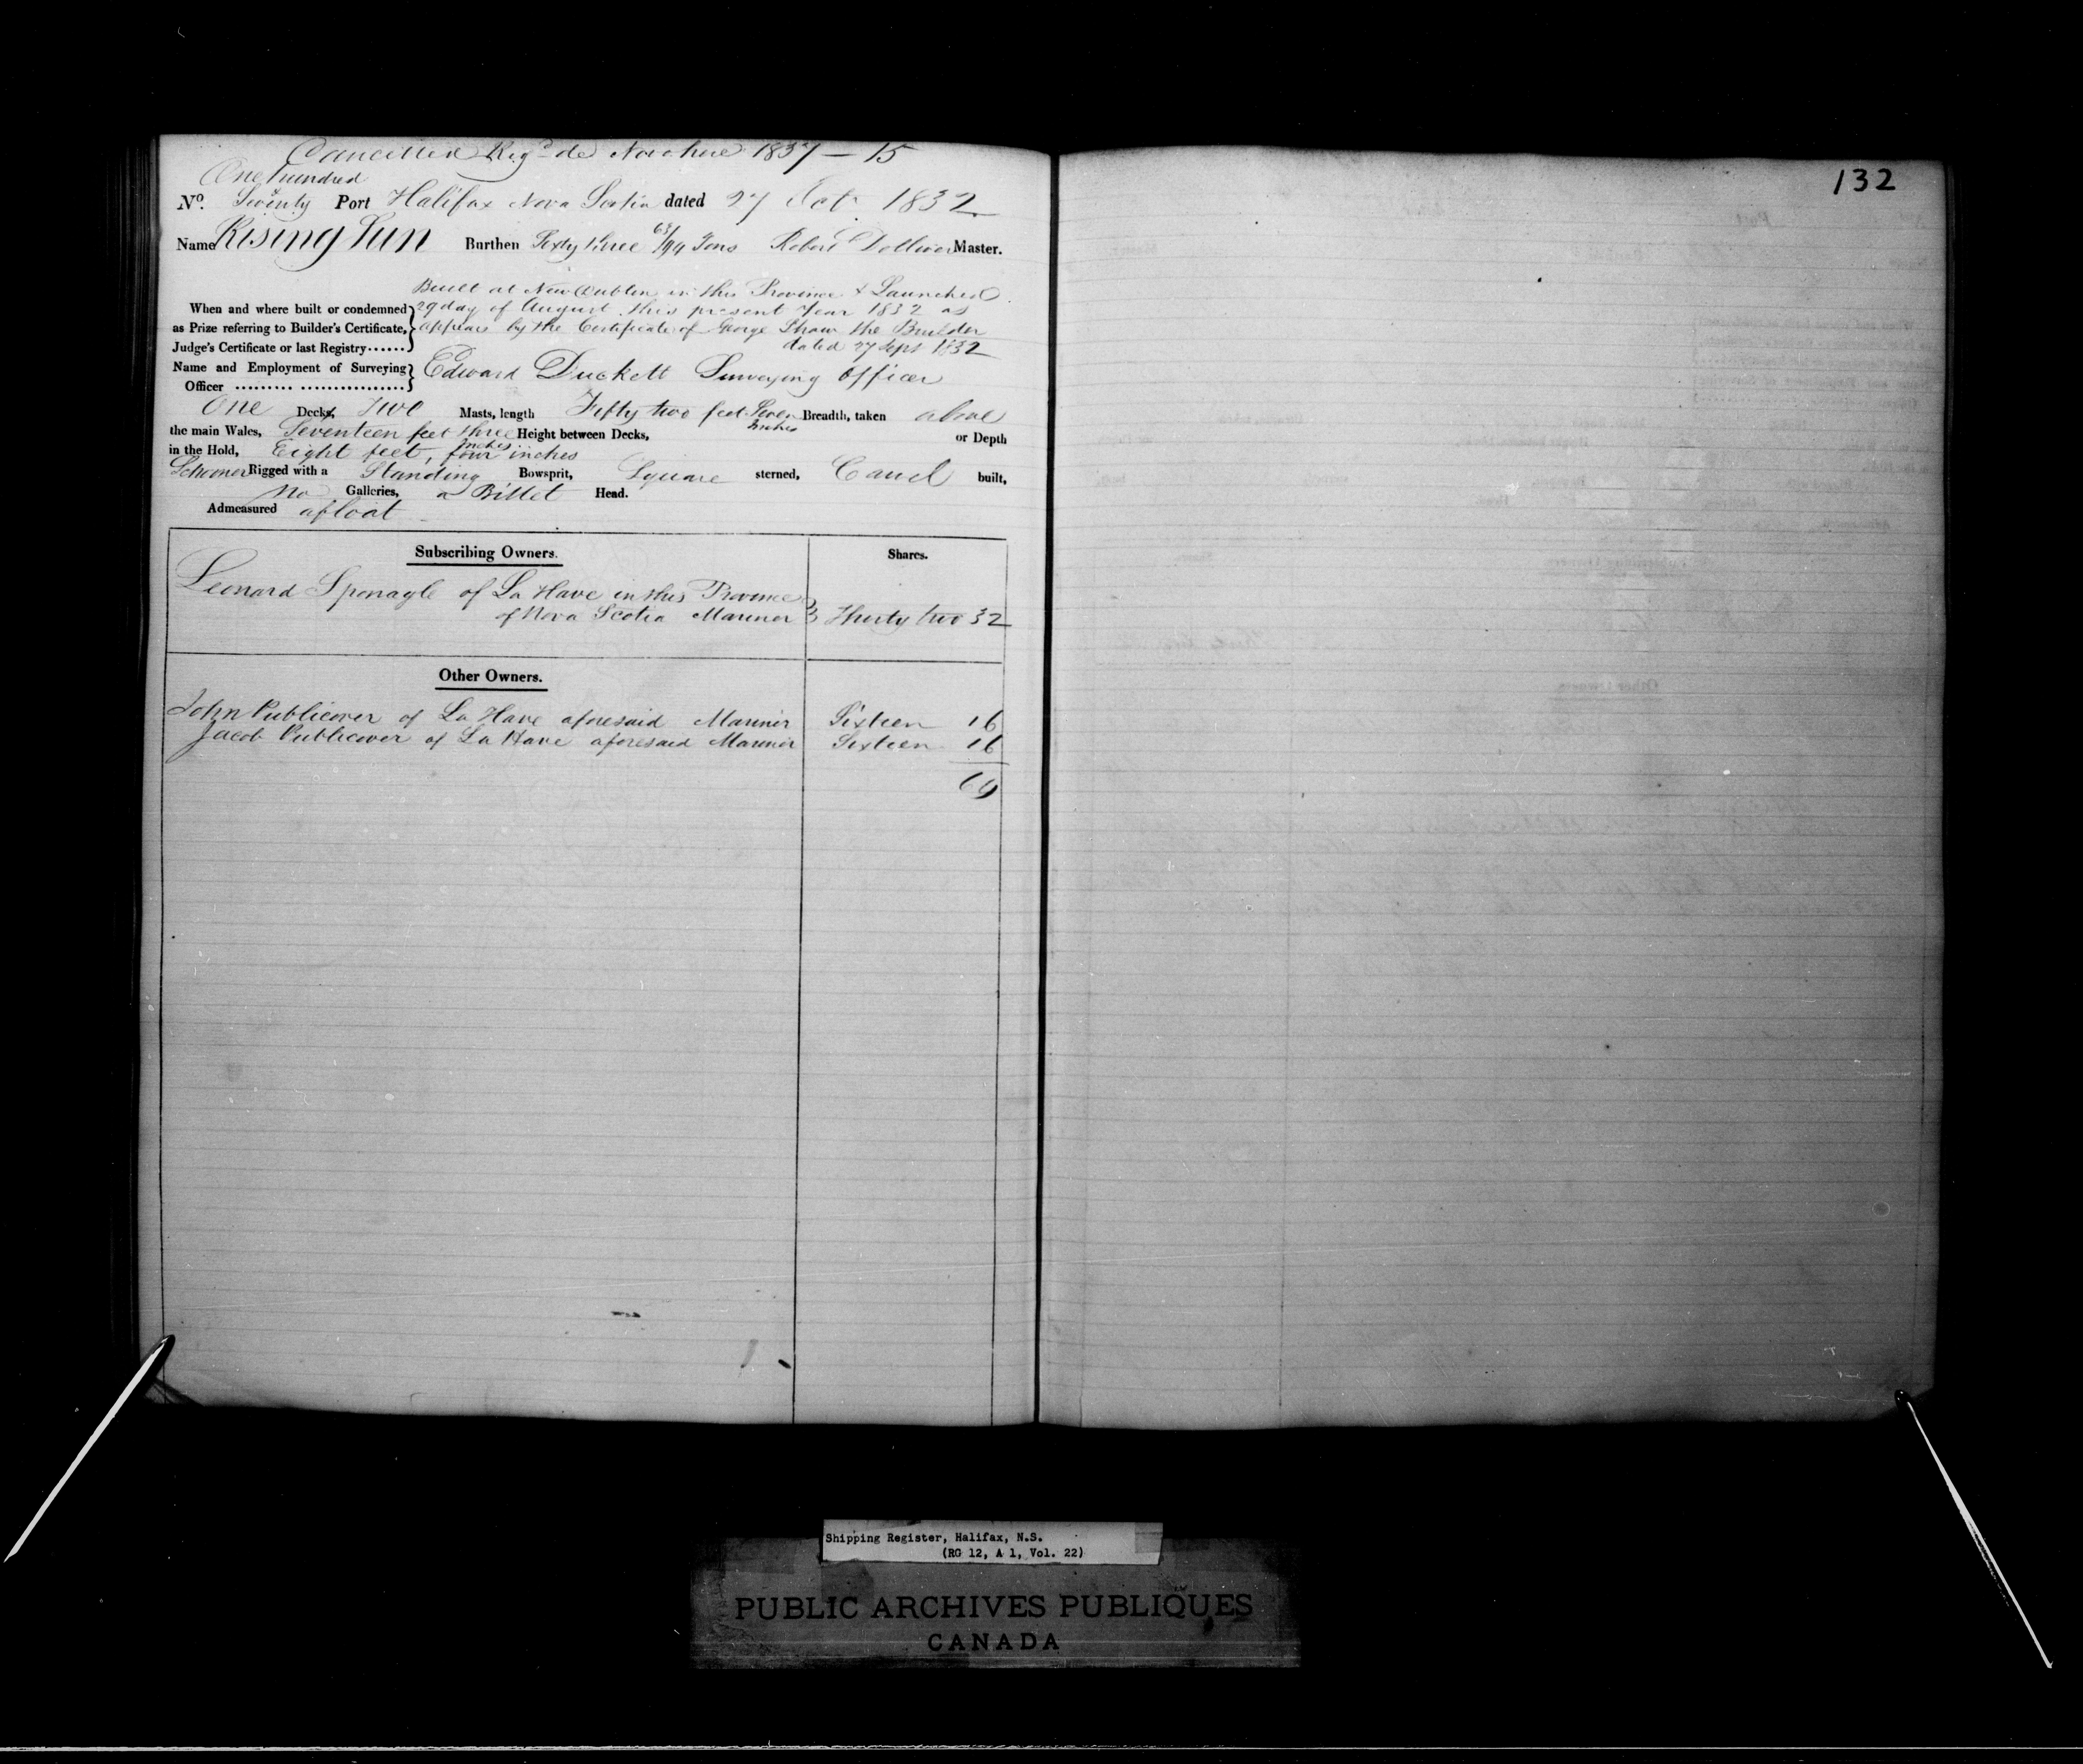 Cancelled Reg'd de Novo here 1837 — 15
One hundred
No. & Seventy Port Halifax Nova Scotia dated 27 Oct 1832
Name Rising Sun Burthen Sixty three 63/94 Tons Robert Dolliver Master.
Built at New Dublin in this Province & Launched
When and where built or condemned 29 day of August this present Year 1832 as
as Prize referring to Builder's Certificate, appears by the Certificate of George Shaw the Builder
Judge's Certificate or last Registry...... dated 27 Sept 1832
Name and Employment of Surveying Edward Duckett Surveying Officer
Officer .......... ................
One Deck, Two Masts, length Fifty two feet Seven Inches Breadth, taken above
the main Wales, Seventeen feet three Inches Height between Decks, or Depth
in the Hold, Eight feet, four inches
Schooner Rigged with a Standing Bowsprit, Square sterned, Carvel built,
no Galleries, a Billet Head.
Admeasured afloat
Subscribing Owners. Shares.
Leonard Sponagle of La Have in this Province
of Nova Scotia Mariner } Thirty two 32
Other Owners.
John Publicover of La Have aforesaid Mariner Sixteen 16
Jacob Publicover of La Have aforesaid Mariner Sixteen 16
64
132
Shipping Register, Halifax, N.S.
(RG 12, A 1, Vol. 22)
PUBLIC ARCHIVES PUBLIQUES
CANADA